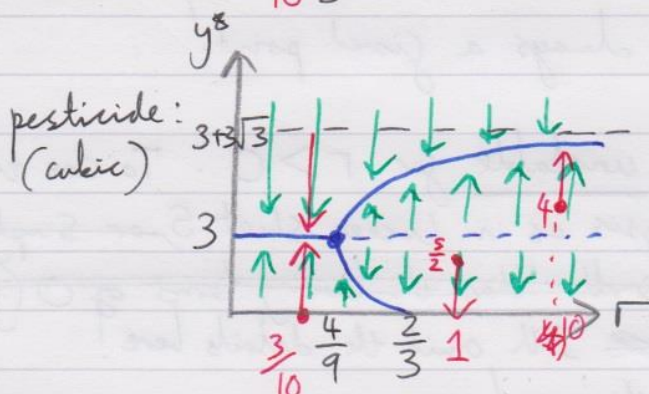 10
y*
pesticide:
(cubic)
3+3√3
3
5/2
4
3/10
4/9
2/3
1
10
r